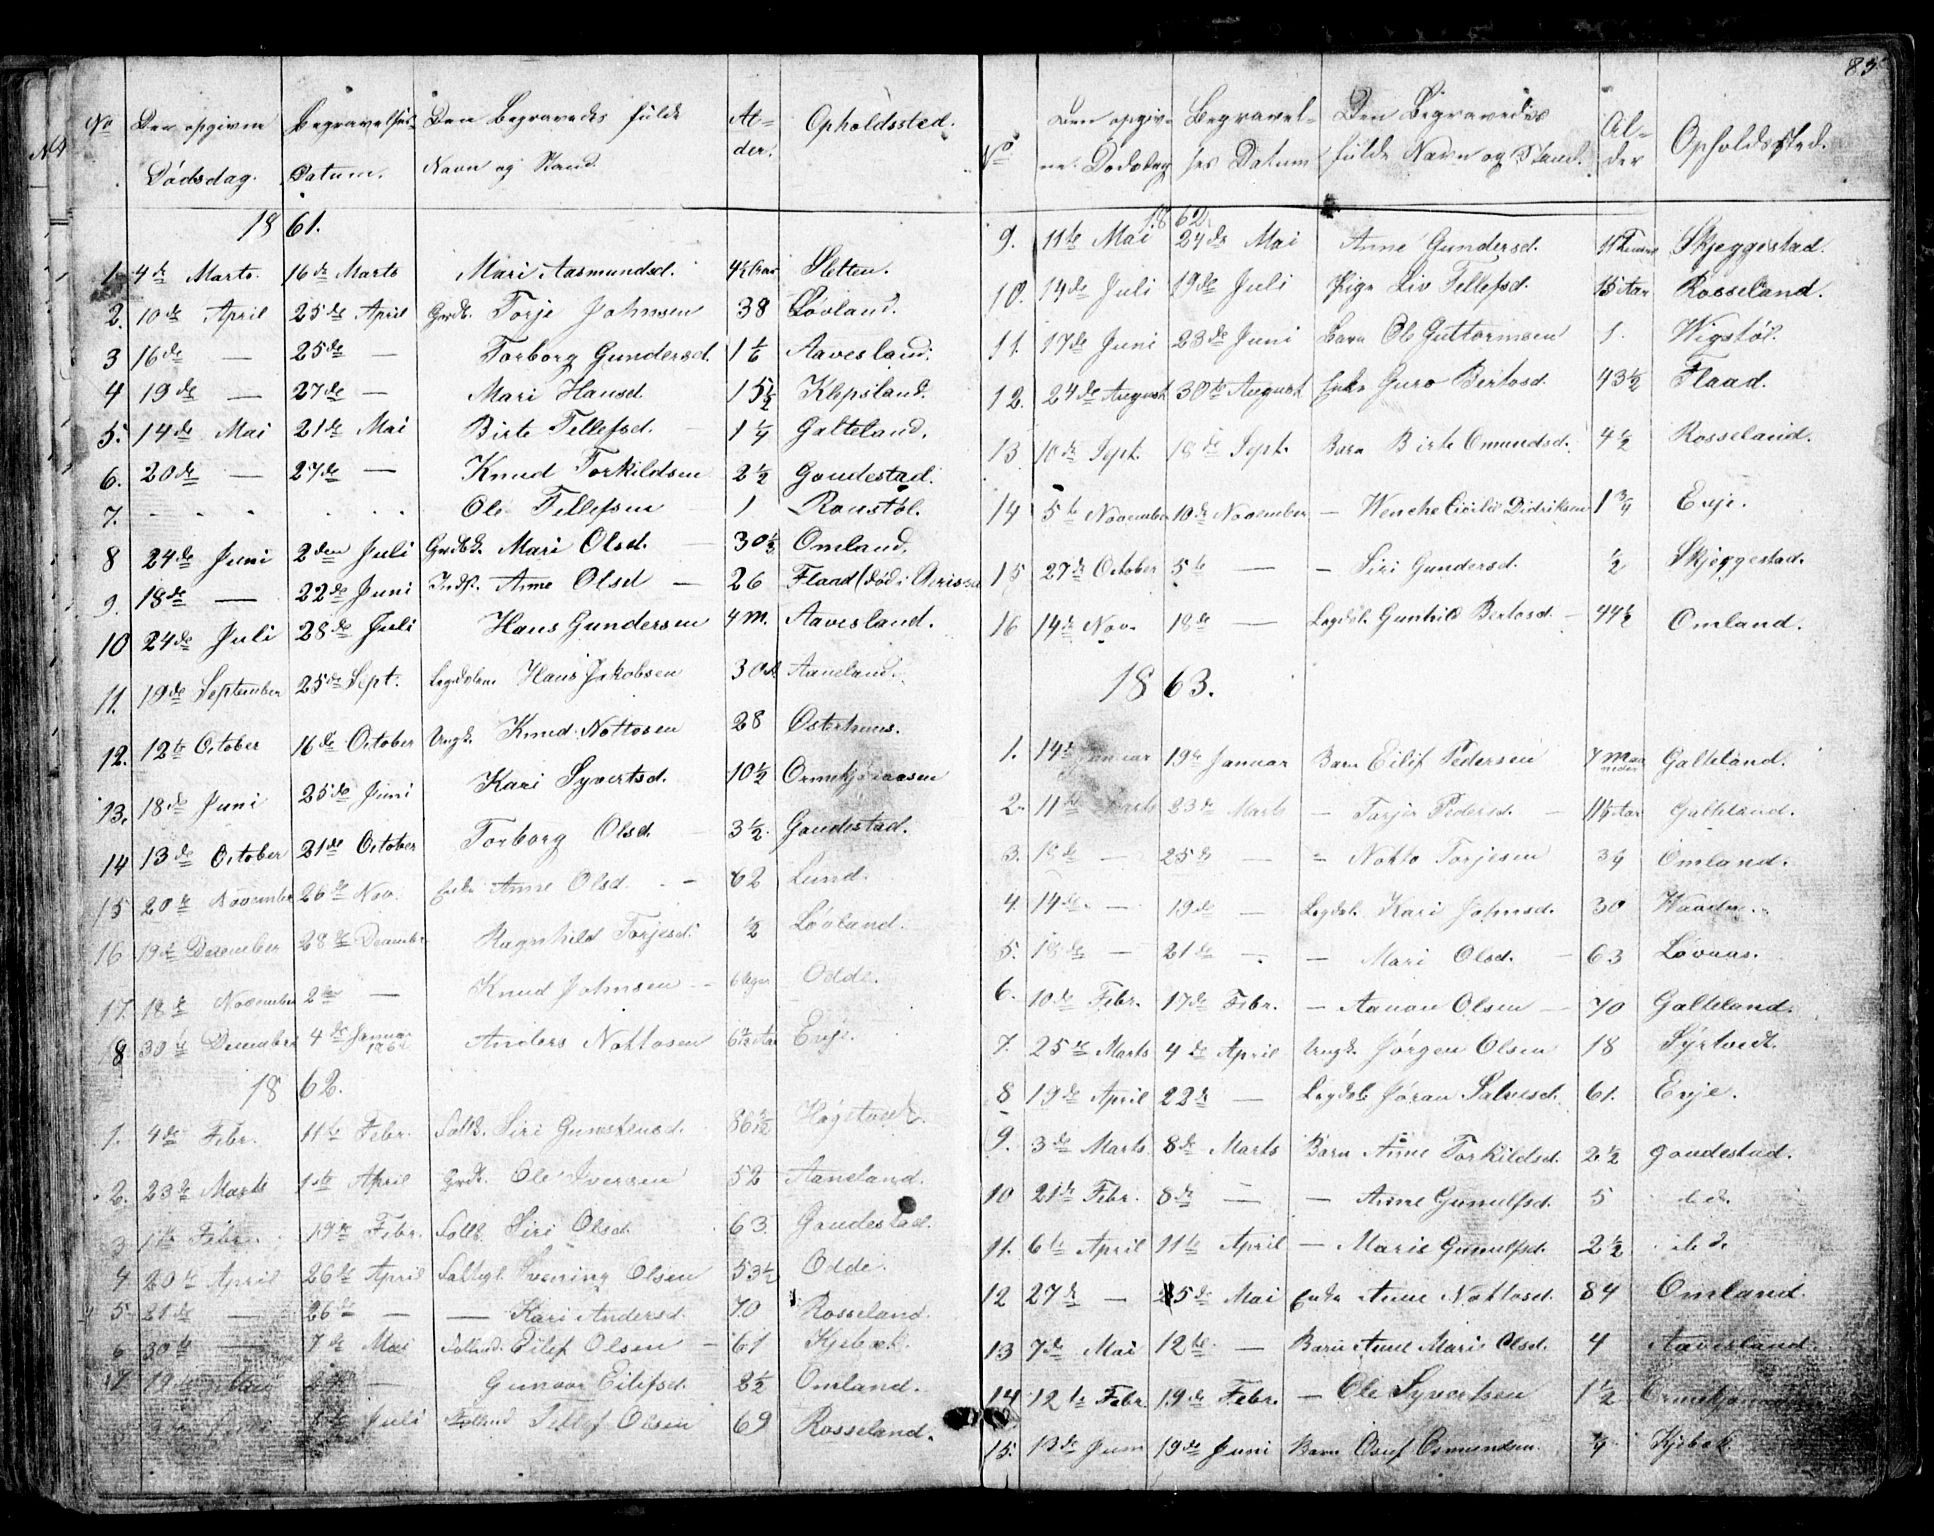 85
No Den opgivne Begravelses- Den Begravedes fulde Al- Opholdssted.
Dødsdag. Datum. Navn og Stand. der.
1861.
1. 4de Marts. 16de Marts Mari Aasmundsd. Sletten.
2. 10de April 25de April Grdb. Torje Johnsen 38 Løvland.
3 16de — 25de — Torborg Gundersd. 1 1/6 Aavesland.
4 19de — 27de — Mari Hansd. 15 1/2 Klepsland.
5. 14de Mai 21de Mai Birte Tellefsd. 1 1/4 Galteland.
6. 20de — 27de — Knud Torkildsen 2 1/2 Goudestad.
7. . . . . . . Ole Tellefsen 1 Ronstøl.
8 24de Juni 2den Juli Mari Olsd. 30 1/2 Omland.
9. 18de — 22de Juni Indst. Anne Olsd — 26 Flaad (død i
10 24de Juli 28de Juli Hans Gundersen 4 M. Aavesland.
11. 19de September 25de Sept. Hans Jakobsen 30 Aaneland.
12. 12te October 16de October Ungk. Knud Nottosen 28 Østerhuus.
13. 18de Juni 25de Juni Kari Syvertsd. 10 1/2
14 13de October 21de October Torborg Olsd. 3 1/2. Goudestad.
15 20de November 26de Nov. Enke Anne Olsd. — 62 Lund.
16 19de December 28de December Ragnhild Torjesd. 1/2 Løvland.
17. 18de November 2den — Knud Johnsen — 6 Dage Odde.
18 30te December 4de Januar 1862 Anders Nottosen Evje.
1862.
1. 4de Febr. 11te Febr. Folk. Siri Gunstensd. 86
2. 23de Marts 1ste April Grdb. Ole Iversen 52 Aaneland.
3 Febr. 19de Febr. Folk. Siri Olsd. 63. Goudestad.
4 20de April 26de April Svening Olsen 53 1/2 Odde.
5. 21de — 26de — — Kari Andersd. 70 Rosseland.
6 30te — 7de Mai Eilef Olsen — 61 Kjebæk.
7 19de Mai — Gunvor Eilefsd. 8 1/2 Omland.
8 Juli Tellef Olsen 69 Rosseland.
No Den opgiv- Begravel- Den Begravedes Al- Opholdssted.
ne Dødsdag ses Datum fulde Navn og Stand. der
1862
9. 11te Mai 24de Mai Anne Gundersd. Skjeggestad.
10. 14de Juli 19de Juli Pige Liv Tellefsd. 15 Aar Rosseland.
11. 17de Juni 23de Juni Barn Ole Guttormsen 1. Wigstøl.
12. 24de August 30te August Enke Guro Bertosd. 43 1/2 Flaad.
13 10de Sept. 18de Sept. Barn Birte Omundsd. 4 1/2 Rosseland.
14 5te November 10de November — Wenche Cicilie Didriksen 1 3/4 Evje.
15 27de October 5te — — Siri Gundersd. 1/2 Skjeggestad.
16 14de Nov. 18de — Legdsl. Gunhild Bertosd. — 44 1/2 Omland.
1863.
1. 14de Januar 19de Januar Barn Eilif Pedersen 7 Maaneder Galteland.
2. 11te Marts 23de Marts — Torjer Pedersd. — Galteland.
3. 18de — 25de — — Notto Torjesen 3/4 Omland.
4. 14de — 19de — Legdsl. Kari Johnsd. 30 Waaden.
5. 18de — 21de — — Mari Olsd. — 63 Løvaas.
6. 10de Febr. 17de Febr. — Aanon Olsen — 70 Galteland.
7. 25de Marts 4de April Ungk. Jørgen Olsen 18 Syrtveit.
8 19de April 22de — Legdsl. Jøran Salvesd. 61. Evje.
9. 3de Marts. 8de Marts Barn Anne Torkildsd. 2 1/2 Goudestad.
10 21de Febr. 8de — — Anne Gunulfsd. 5 do do
11. 6te April 11te April — Marie Gunulfsd. 2 1/2 do do
12 27de — 5de Mai Enke Anne Nottosd. 84 Omland.
13 7de Mai 12te — Barn Anne Marie Olsd. 4 Aavesland.
14 12te Febr. 19de Febr. — Ole Syvertsen 1 1/2
15. 13de Juni 19de Juni Barn Osuf Osmundsen. Kjebæk